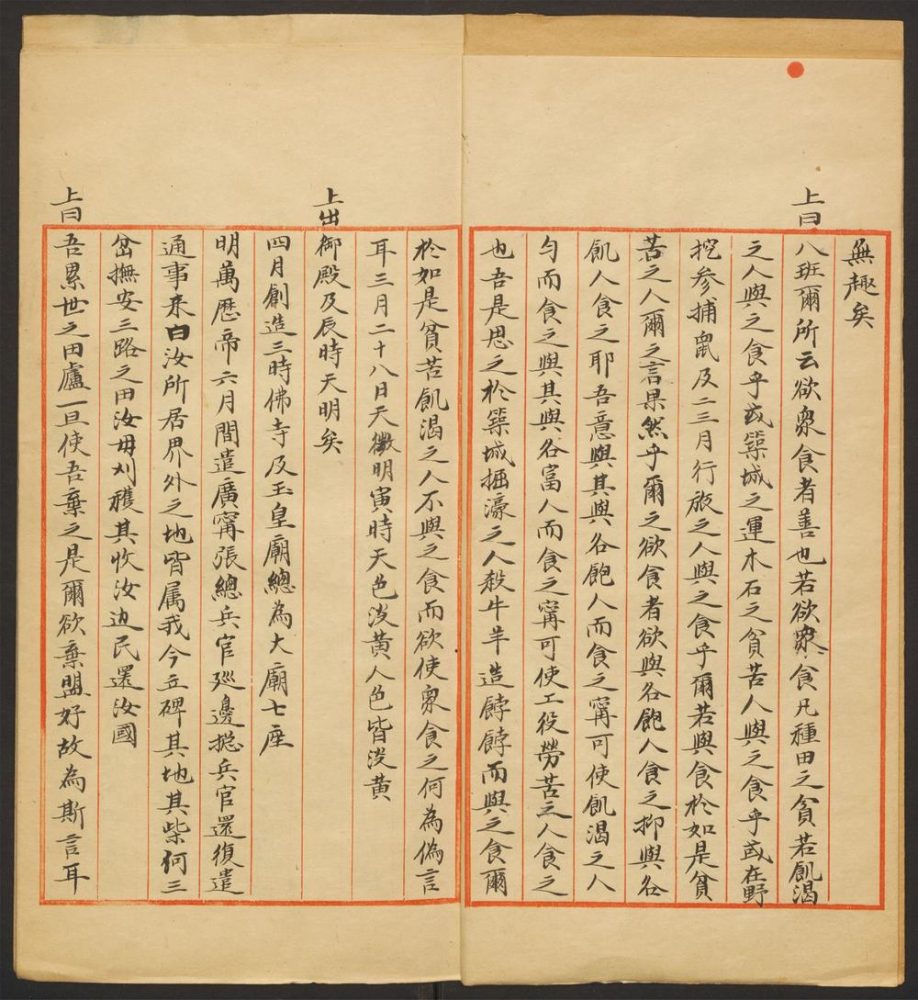 無趣矣
上曰八班爾所云欲衆食者善也若欲衆食凡種田之貧若飢渴
之人與之食乎或築城之運木石之貧苦人與之食乎或在野
挖参捕鼠及二三月行旅之人與之食乎爾若與食於如是貧
苦之人爾之言果然乎爾之欲食者欲與各飽人食之抑與各
飢人食之耶吾意與其與各飽人而食之寧可使飢渴之人
匀而食之與其與各富人而食之寧可使工役勞苦之人食之
也吾是思之於築城掘濠之人殺牛羊造餑餑而與之食爾
於如是貧苦飢渴之人不與之食而欲使衆食之何為偽言
耳三月二十八日天徽明寅時天色淡黄人色皆淡黄
上出御殿及辰時天明矣
四月創造三時佛寺及玉皇廟總為大廟七座
明萬歷帝六月間遣廣寧張總兵官廵邊總兵官還復遣
通事來白汝所居界外之地皆属我今立碑其地其柴何三
岔撫安三路之田汝毋刈穫其收汝边民還汝國
上曰吾累世之田廬一旦使吾棄之是爾欲棄盟好故為斯言耳